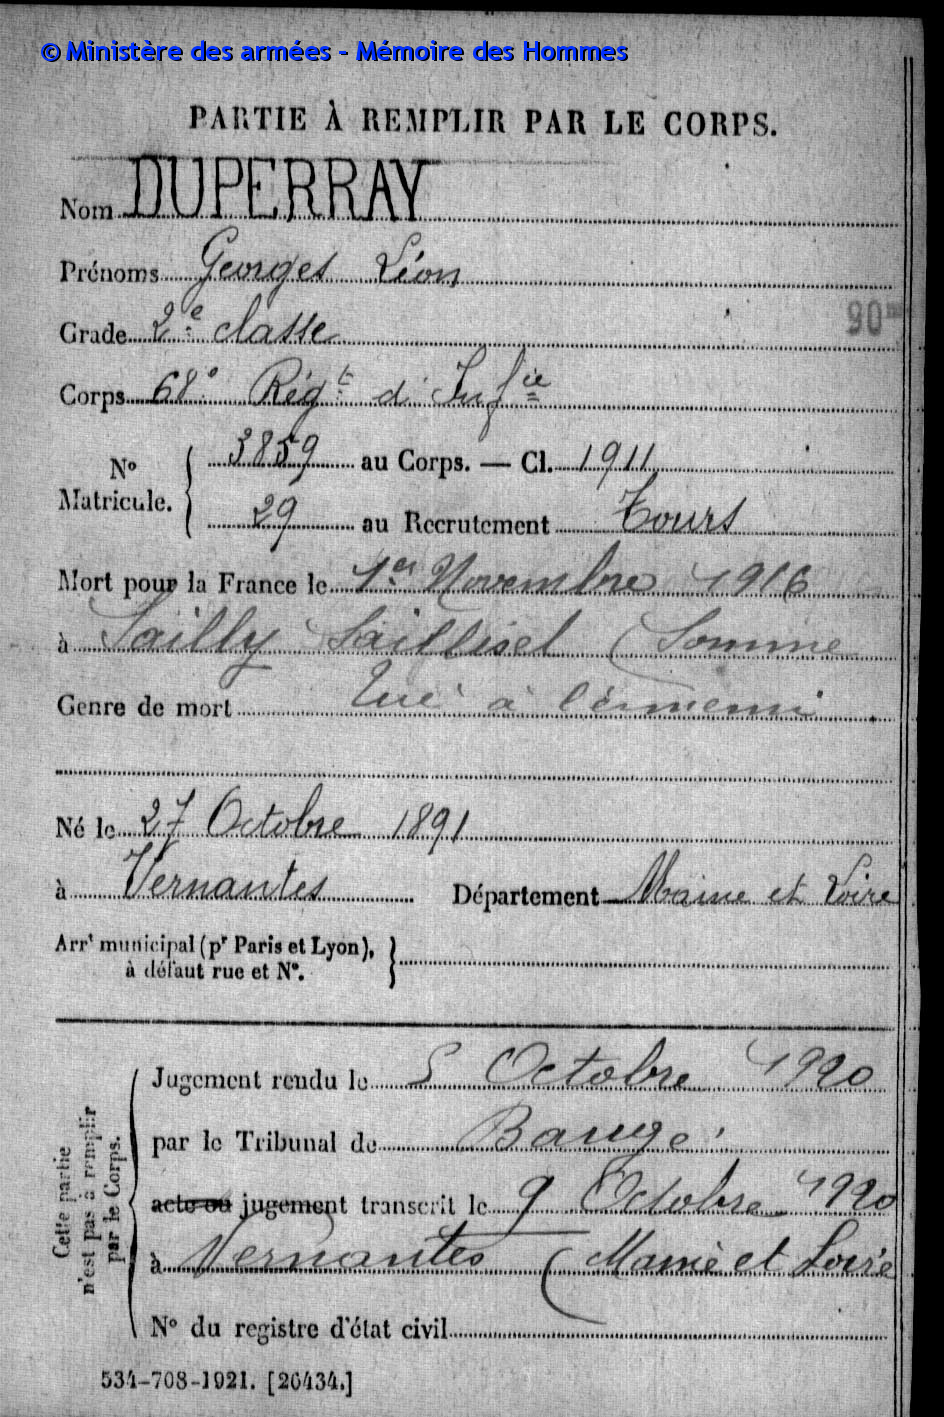 © Ministère des armées - Mémoire des Hommes
PARTIE À REMPLIR PAR LE CORPS.
Nom DUPERRAY
Prénoms Georges Léon
Grade 2e classe
90
Corps 68e Régt d'Infie
No Matricule. { 3859 au Corps. — Cl. 1911
29 au Recrutement Tours
Mort pour la France le 1er Novembre 1916
à Sailly Saillisel (Somme
Genre de mort Tué à l'ennemi
Né le 27 Octobre 1891
à Vernantes Département Maine et Loire
Arrt municipal (pr Paris et Lyon), }
à défaut rue et No.
Cette partie n'est pas à remplir par le Corps.
Jugement rendu le 5 Octobre 1920
par le Tribunal de Baugé
acte ou jugement transcrit le 9 Octobre 1920
à Vernantes (Maine et Loire
No du registre d'état civil
534-708-1921. [26434.]